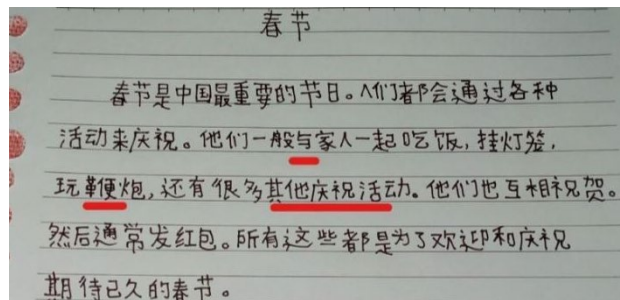 春节
春节是中国最重要的节日。人们都会通过各种
活动来庆祝。他们一般与家人一起吃饭,挂灯笼,
玩鞭炮,还有很多其他庆祝活动。他们也互相祝贺。
然后通常发红包。所有这些都是为了欢迎和庆祝
期待已久的春节。